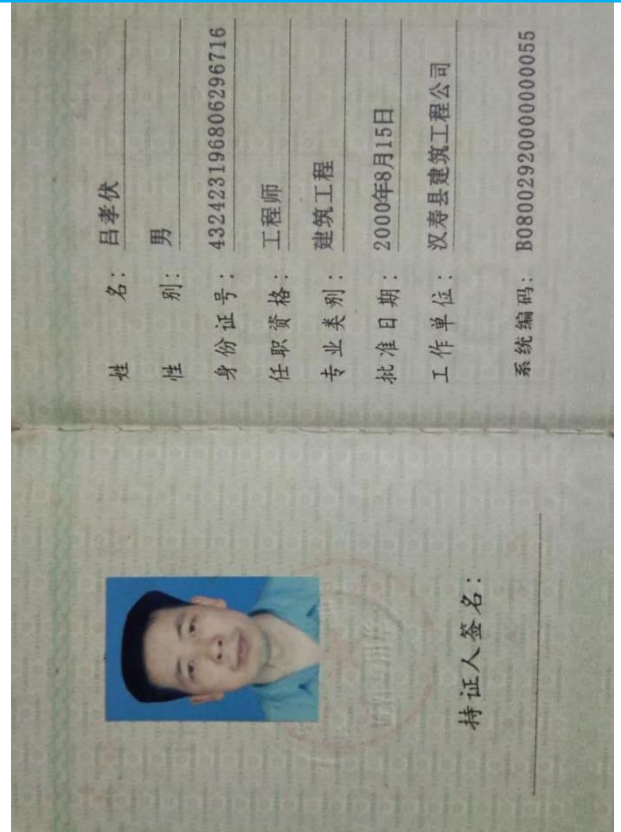 姓名：吕孝伏
性别：男
身份证号：432423196806296716
任职资格：工程师
专业类别：建筑工程
批准日期：2000年8月15日
工作单位：汉寿县建筑工程公司
系统编码：B08002920000000055
持证人签名：